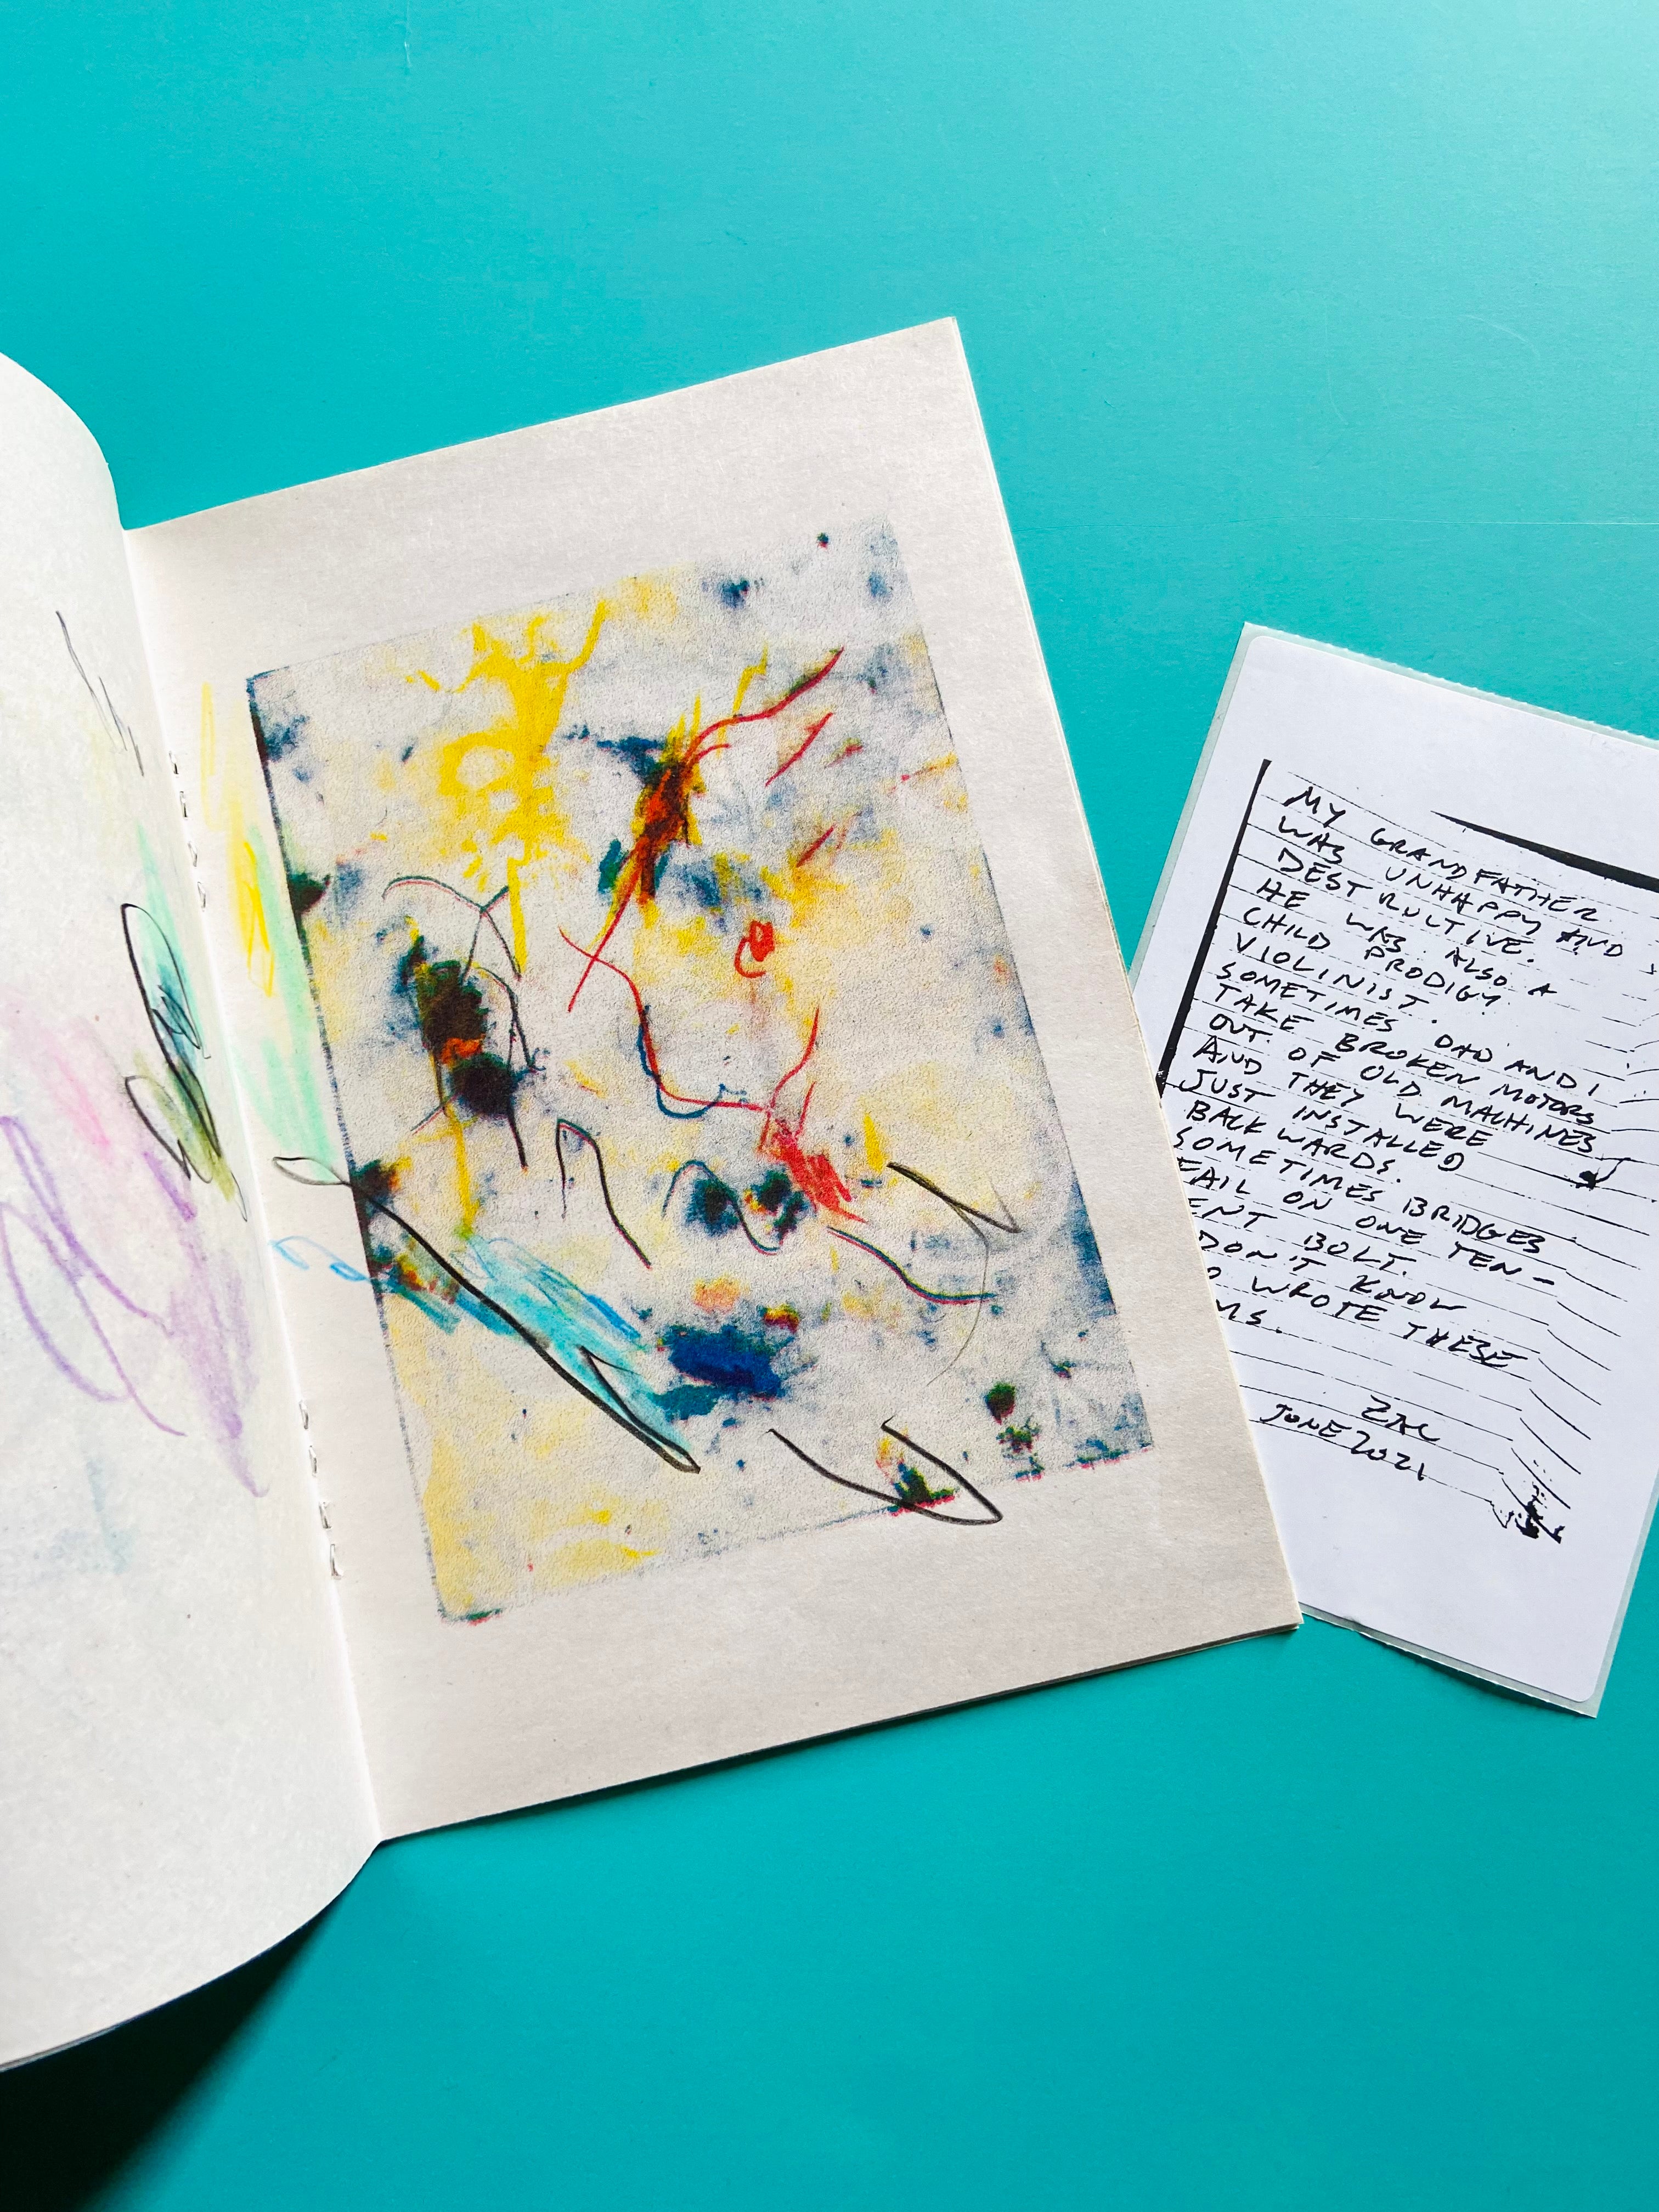 MY GRANDFATHER
WAS UNHAPPY AND
DESTRUCTIVE.
HE WAS ALSO A
CHILD PRODIGY
VIOLINIST.
SOMETIMES DAD AND I
TAKE BROKEN MOTORS
OUT OF OLD MACHINES
AND THEY WERE
JUST INSTALLED
BACKWARDS.
SOMETIMES BRIDGES
FAIL ON ONE TEN-
ENT BOLT.
DON'T KNOW
O WROTE THESE
MS.
ZAC
JUNE 2021